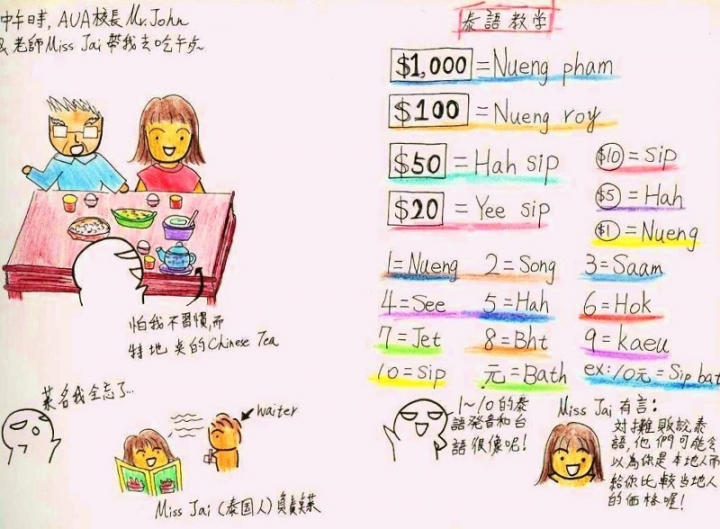 中午時, AUA校長 Mr. John
& 老師 Miss Jai 帶我去吃午
怕我不習慣, 而
特地点的 Chinese Tea
菜名我全忘了...
waiter
Miss Jai (泰国人) 負責点菜
泰語教学
$1,000 = Nueng pham
$100 = Nueng roy
$50 = Hah sip
$20 = Yee sip
$10 = Sip
$5 = Hah
$1 = Nueng
1 = Nueng 2 = Song 3 = Saam
4 = See 5 = Hah 6 = Hok
7 = Jet 8 = Bht 9 = kaeu
10 = sip 元 = Bath ex: 10元 = Sip bat
1~10 的泰
語発音和台
語很像呢!
Miss Jai 有言:
対攤販說泰
語, 他們可能会
以為你是本地人而
給你比較当地人
的価格喔!